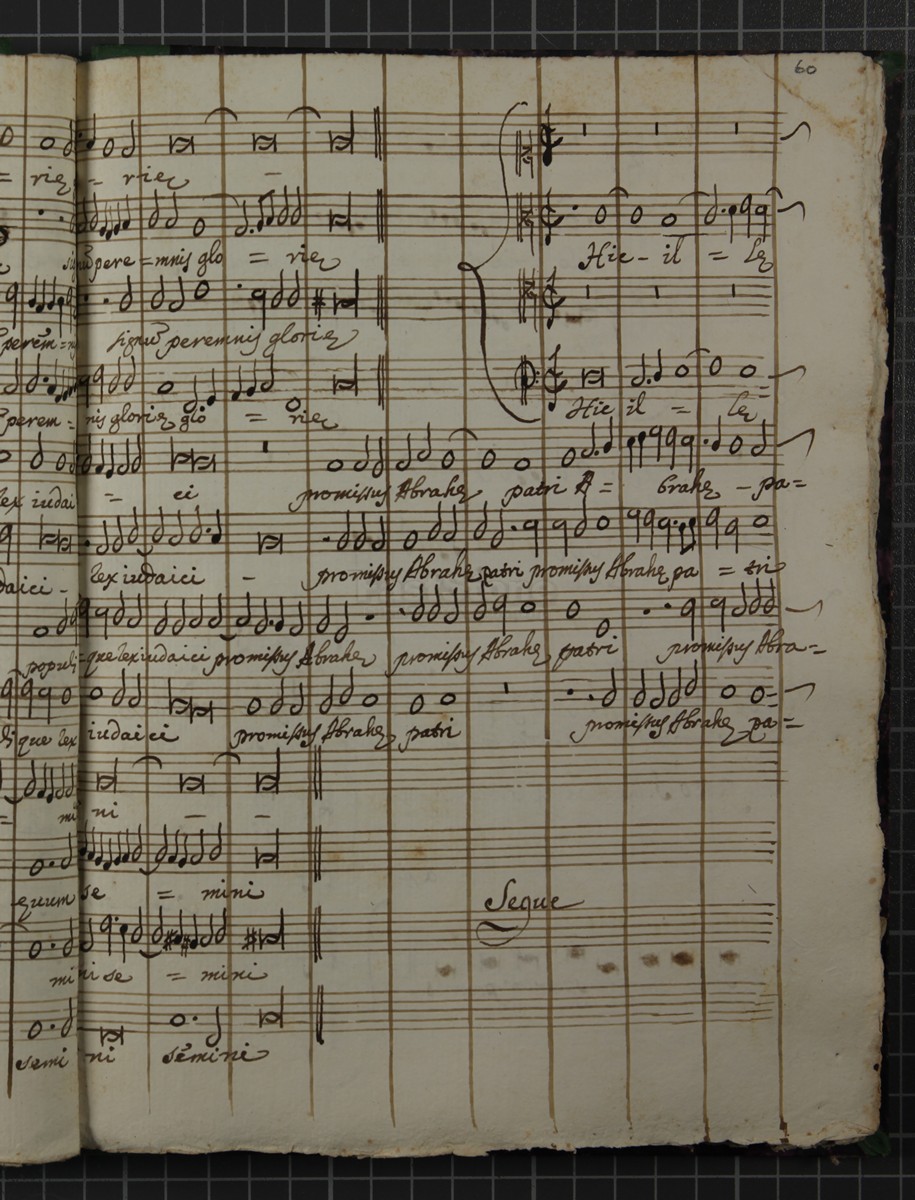 60
= rię = rię -
signũ pere = mnis glo = rię
Hic - il = lę
perem = signũ peremnis glorię
perem = nis glorię glo = rię
Hic il = lę
rex iudai - ei promissus Abrahę patri A = brahę - pa =
daici - rex iudaici - promissus Abrahę patri promissus Abrahę pa = tri
populi = que rex iudaici promissus Abrahę promissus Abrahę patri promissus Abra =
que rex iudaici promissus Abrahę patri promissus Abrahę pa =
= mi ni - -
quum se = mini
Segue
mi ni se = mini
semi ni semini